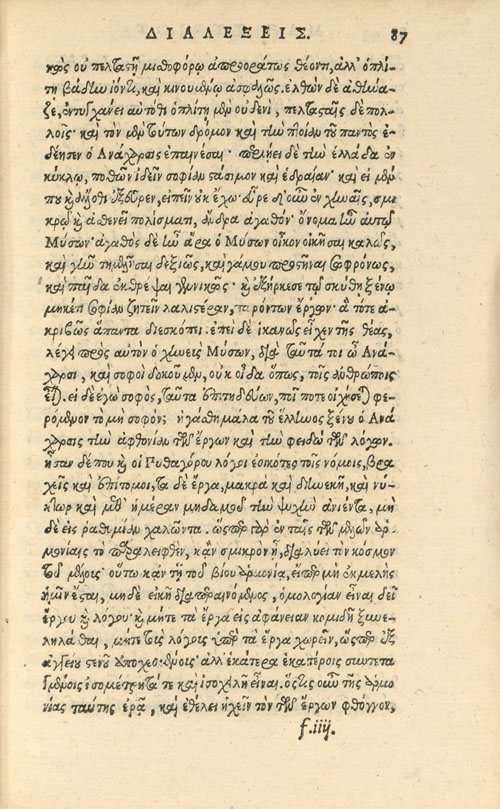 ΔΙΑΛΕΞΕΙΣ. 87
κῶς οὐ πελταςῇ μιθοφόρῳ ἀπροοράτως θέοντι, ἀλλ' ὁπλί-
τῃ βάδίω ἰόντι, καὶ κινουμένῳ ἀσφαλῶς. ἐλθὼν δὲ ἀθήνα-
ζε, ἐντυγχάνει αὐτόθι ὁπλίτῃ μὲν οὐδενὶ, πελταςαῖς δὲ πολ-
λοῖς· καὶ τὸν μὲν τούτων δρόμον καὶ τὴν ποίαν τοῦ παντὸς ἐ-
δέησεν ὁ Ανάχαρσις ἐπαινέσαι· περιῄει δὲ τὴν ἑλλάδα ἐν
κύκλῳ, ποθῶν ἰδεῖν σοφίαν ςάσιμον καὶ ἑδραίαν· καὶ εἰ μέν
που καὶ ἄλλοθι ἐξεῦρεν, εἰπεῖν οὐκ ἔχω· εὗρε δ' οὖν ἐν χίναις, σμι
κρῷ καὶ ἀθενεῖ πολίσματι, ἄνδρα ἀγαθόν· ὄνομα ἦν αὐτῷ
Μύσων· ἀγαθὸς δὲ ἦν ἄρα ὁ Μύσων οἶκον οἰκῆσαι καλῶς,
καὶ γῆν τημελῆσαι δεξιῶς, καὶ γάμου προςῆναι σωφρόνως,
καὶ παῖδα ἐκθρέψαι γεννικῶς· καὶ ἐξήρκεσε τῷ σκύθῃ ξένῳ
μηκέτι σοφίαν ζητεῖν λαλιςέραν, παρόντων ἔργων· ἃ τότε ἀ-
κριβῶς ἅπαντα διεσκόπει. ἐπεὶ δὲ ἱκανῶς εἶχεν τῆς θέας,
λέγει πρὸς αὐτὸν ὁ χίνεις Μύσων, διὰ ταῦτά τοι ὦ Ανά-
χαρσι, καὶ σοφοὶ δοκοῦμεν, οὐκ οἶδα ὅπως, τοῖς ἀνθρώποις
εἶναι. εἰ δὲ ἐγὼ σοφὸς, ταῦτα ἐπιτηδεύων, ποῖ ποτε οἰχήσεται φε-
ρόμενον τὸ μὴ σοφόν; ἠγάθη μάλα τοῦ ἕλληνος ξένου ὁ Ανά
χαρσις τὴν ἀφθονίαν τῶν ἔργων καὶ τὴν φειδὼ τῶν λόγων.
ἦσαν δέ που καὶ οἱ Πυθαγόρου λόγοι ἐοικότες τοῖς νόμοις, βρα
χεῖς καὶ ἐπίτομοι, τὰ δὲ ἔργα, μακρὰ καὶ διηνεκῆ, καὶ νύ-
κτωρ καὶ μεθ' ἡμέραν μηδαμοῦ τὴν ψυχὴν ἀνιέντα, μὴ
δὲ εἰς ῥαθυμίαν χαλῶντα. ὥσπερ γὰρ ἐν ταῖς τῶν μελῶν ἁρ-
μονίαις τὸ παραλειφθὲν, κἂν σμικρὸν ᾖ, διαλύει τὸν κόσμον
τοῦ μέλους· οὕτω κἂν τῇ τοῦ βίου ἁρμονίᾳ, εἴπερ μὴ ἐκμελὴς
ἡμῖν ἔςαι, μηδὲ εἰκῆ διαπεραινόμενος, ὁμολογίαν εἶναι δεῖ
ἔργου καὶ λόγου· καὶ μήτε τὰ ἔργα εἰς ἀφάνειαν κομιδῇ ξυνε-
ληλάθαι, μήτε τοὺς λόγους ὑπὲρ τὰ ἔργα χωρεῖν, ὥσπερ ἐξ
ἀγγείου ςενοῦ ὑποχεομένους· ἀλλ' ἑκάτερα ἑκατέροις συντετα
γμένοις ἰσομέτρητά τε καὶ ἰσοχειλῆ εἶναι. ὅςις οὖν τῆς ἁρμο
νίας ταύτης ἐρᾷ, καὶ ἐθέλει ἠχεῖν τὸν τῶν ἔργων φθόγγον,
f.iiij.